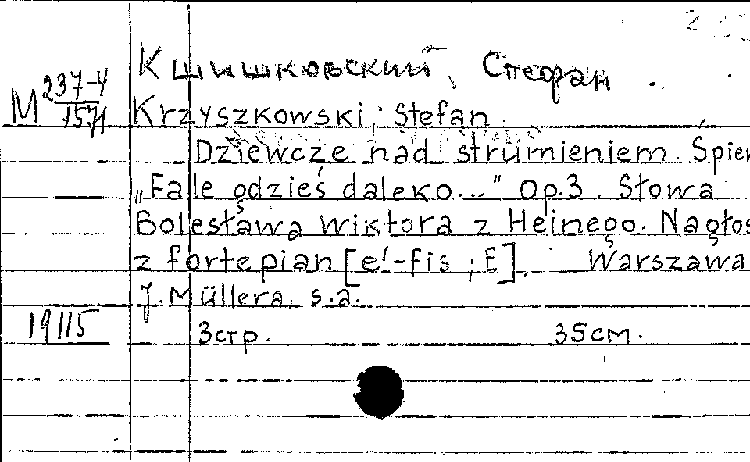 Кшишковский, Стефан.
М 237-4
1571
Krzyszkowski, Stefan.
Dziewczę nad strumieniem. Śpiew
„Fale gdzieś daleko..." Op.3. Słowa
Bolesława Wiktora z Heinego. Na głos
z fortepian [e¹-fis ; E]. Warszawa
J. Müllera. s.a.
19115
3стр. 35см.